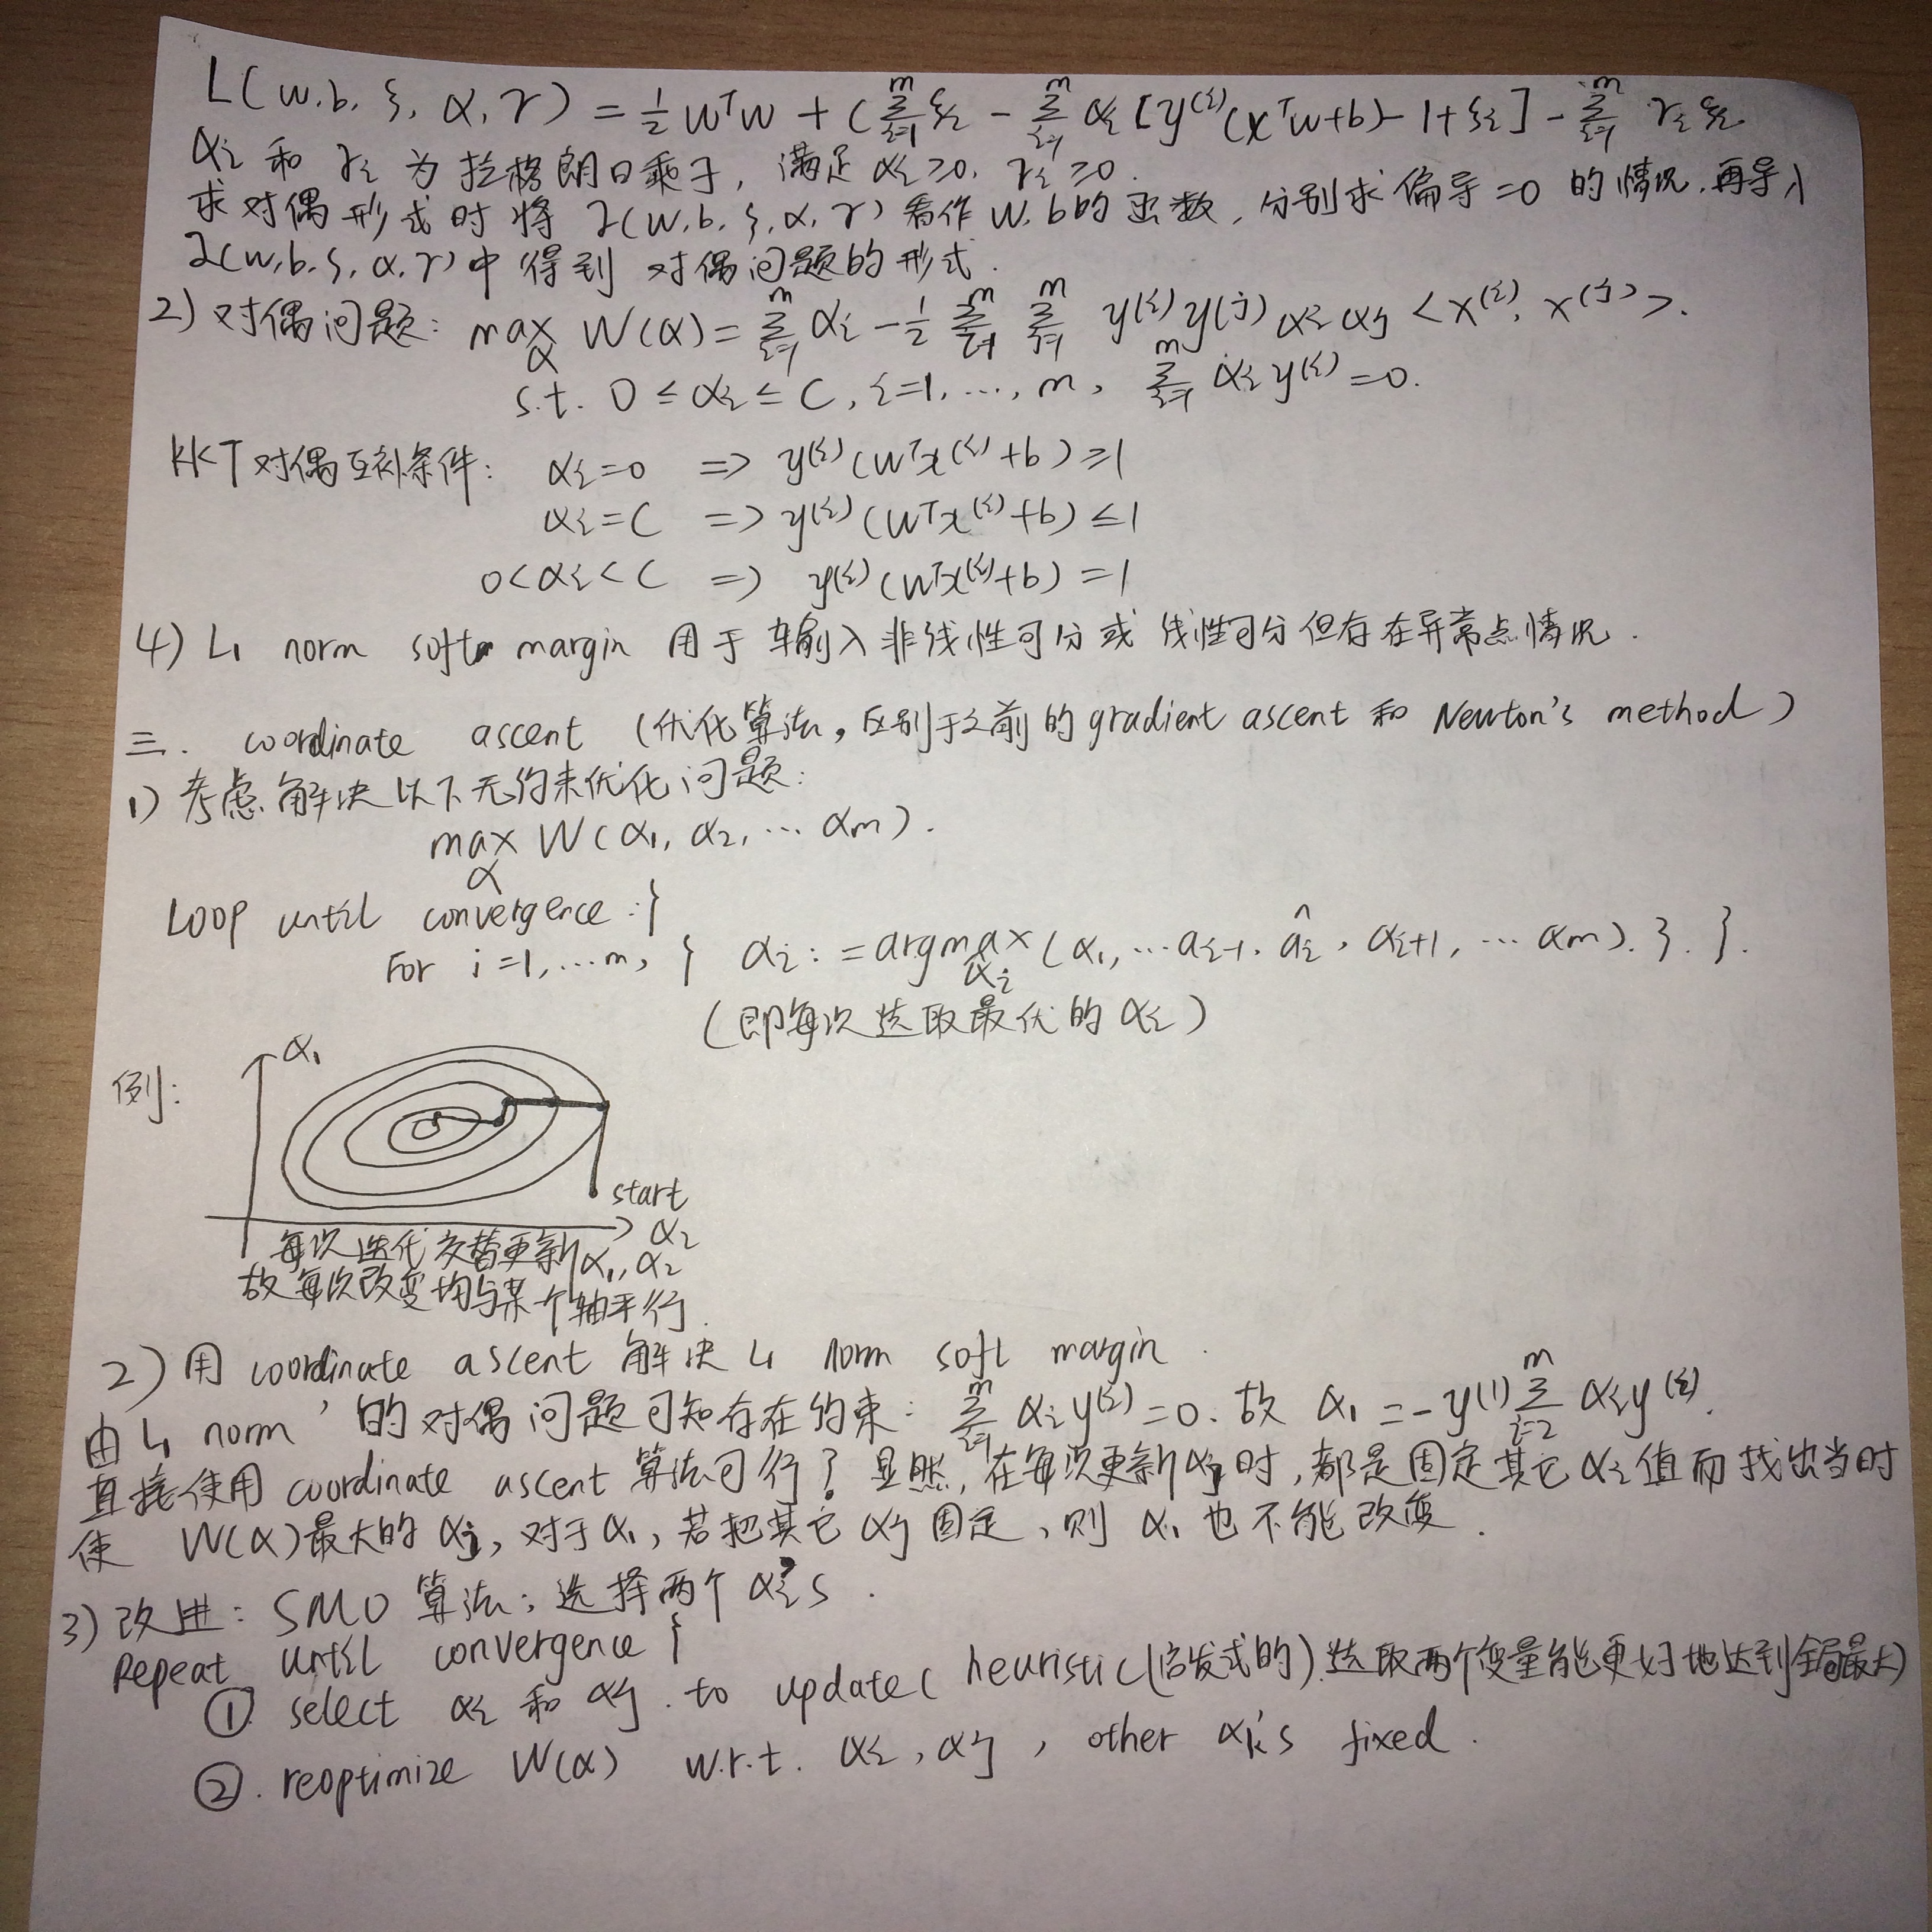 L(w,b,ξ,α,γ) = ½wᵀw + C∑ᵢ₌₁ᵐξᵢ - ∑ᵢ₌₁ᵐαᵢ[y⁽ⁱ⁾(xᵀw+b)-1+ξᵢ] - ∑ᵢ₌₁ᵐ γᵢξᵢ
αᵢ 和 γᵢ 为拉格朗日乘子, 满足 αᵢ≥0, γᵢ≥0.
求对偶形式时将 L(w,b,ξ,α,γ) 看作 w,b的函数, 分别求偏导=0 的情况, 再导入
L(w,b,ξ,α,γ)中得到 对偶问题的形式.
2) 对偶问题: max_α W(α) = ∑ᵢ₌₁ᵐ αᵢ - ½ ∑ᵢ₌₁ᵐ ∑ⱼ₌₁ᵐ y⁽ⁱ⁾y⁽ʲ⁾αᵢαⱼ <x⁽ⁱ⁾, x⁽ʲ⁾>.
s.t. 0 ≤ αᵢ ≤ C, i=1, ..., m, ∑ᵢ₌₁ᵐ αᵢy⁽ⁱ⁾=0.
KKT对偶互补条件: αᵢ=0 => y⁽ⁱ⁾(wᵀx⁽ⁱ⁾+b)≥1
αᵢ=C => y⁽ⁱ⁾(wᵀx⁽ⁱ⁾+b)≤1
0<αᵢ<C => y⁽ⁱ⁾(wᵀx⁽ⁱ⁾+b)=1
4) L₁ norm soft margin 用于 输入非线性可分或 线性可分但存在异常点情况.
三. coordinate ascent (优化算法, 区别于之前的gradient ascent 和 Newton's method)
1) 考虑解决以下无约束优化问题:
max_α W(α₁, α₂, ... αm).
Loop until convergence: {
For i=1,...m, { αᵢ := argmax_αᵢ (α₁, ...aᵢ₋₁, âᵢ, αᵢ₊₁, ... αm). }. }.
(即每次选取最优的αᵢ)
例:
α₁
start
α₂
每次迭代交替更新α₁, α₂
故每次改变均与某个轴平行.
2) 用 coordinate ascent 解决 L₁ norm soft margin.
由 L₁ norm 的对偶问题可知存在约束: ∑ᵢ₌₁ᵐ αᵢy⁽ⁱ⁾=0. 故 α₁ = -y⁽¹⁾∑ᵢ₌₂ᵐ αᵢy⁽ⁱ⁾.
直接使用 coordinate ascent 算法可行? 显然, 在每次更新αⱼ时, 都是固定其它αᵢ值而找出当时
使 W(α)最大的αⱼ, 对于α₁, 若把其它αⱼ固定, 则 α₁也不能改变.
3) 改进: SMO 算法; 选择两个αᵢ's.
Repeat until convergence {
① select αᵢ 和 αⱼ to update( heuristic(启发式的). 选取两个变量能更好地达到全局最大)
②. reoptimize W(α) w.r.t. αᵢ, αⱼ, other αₖ's fixed.